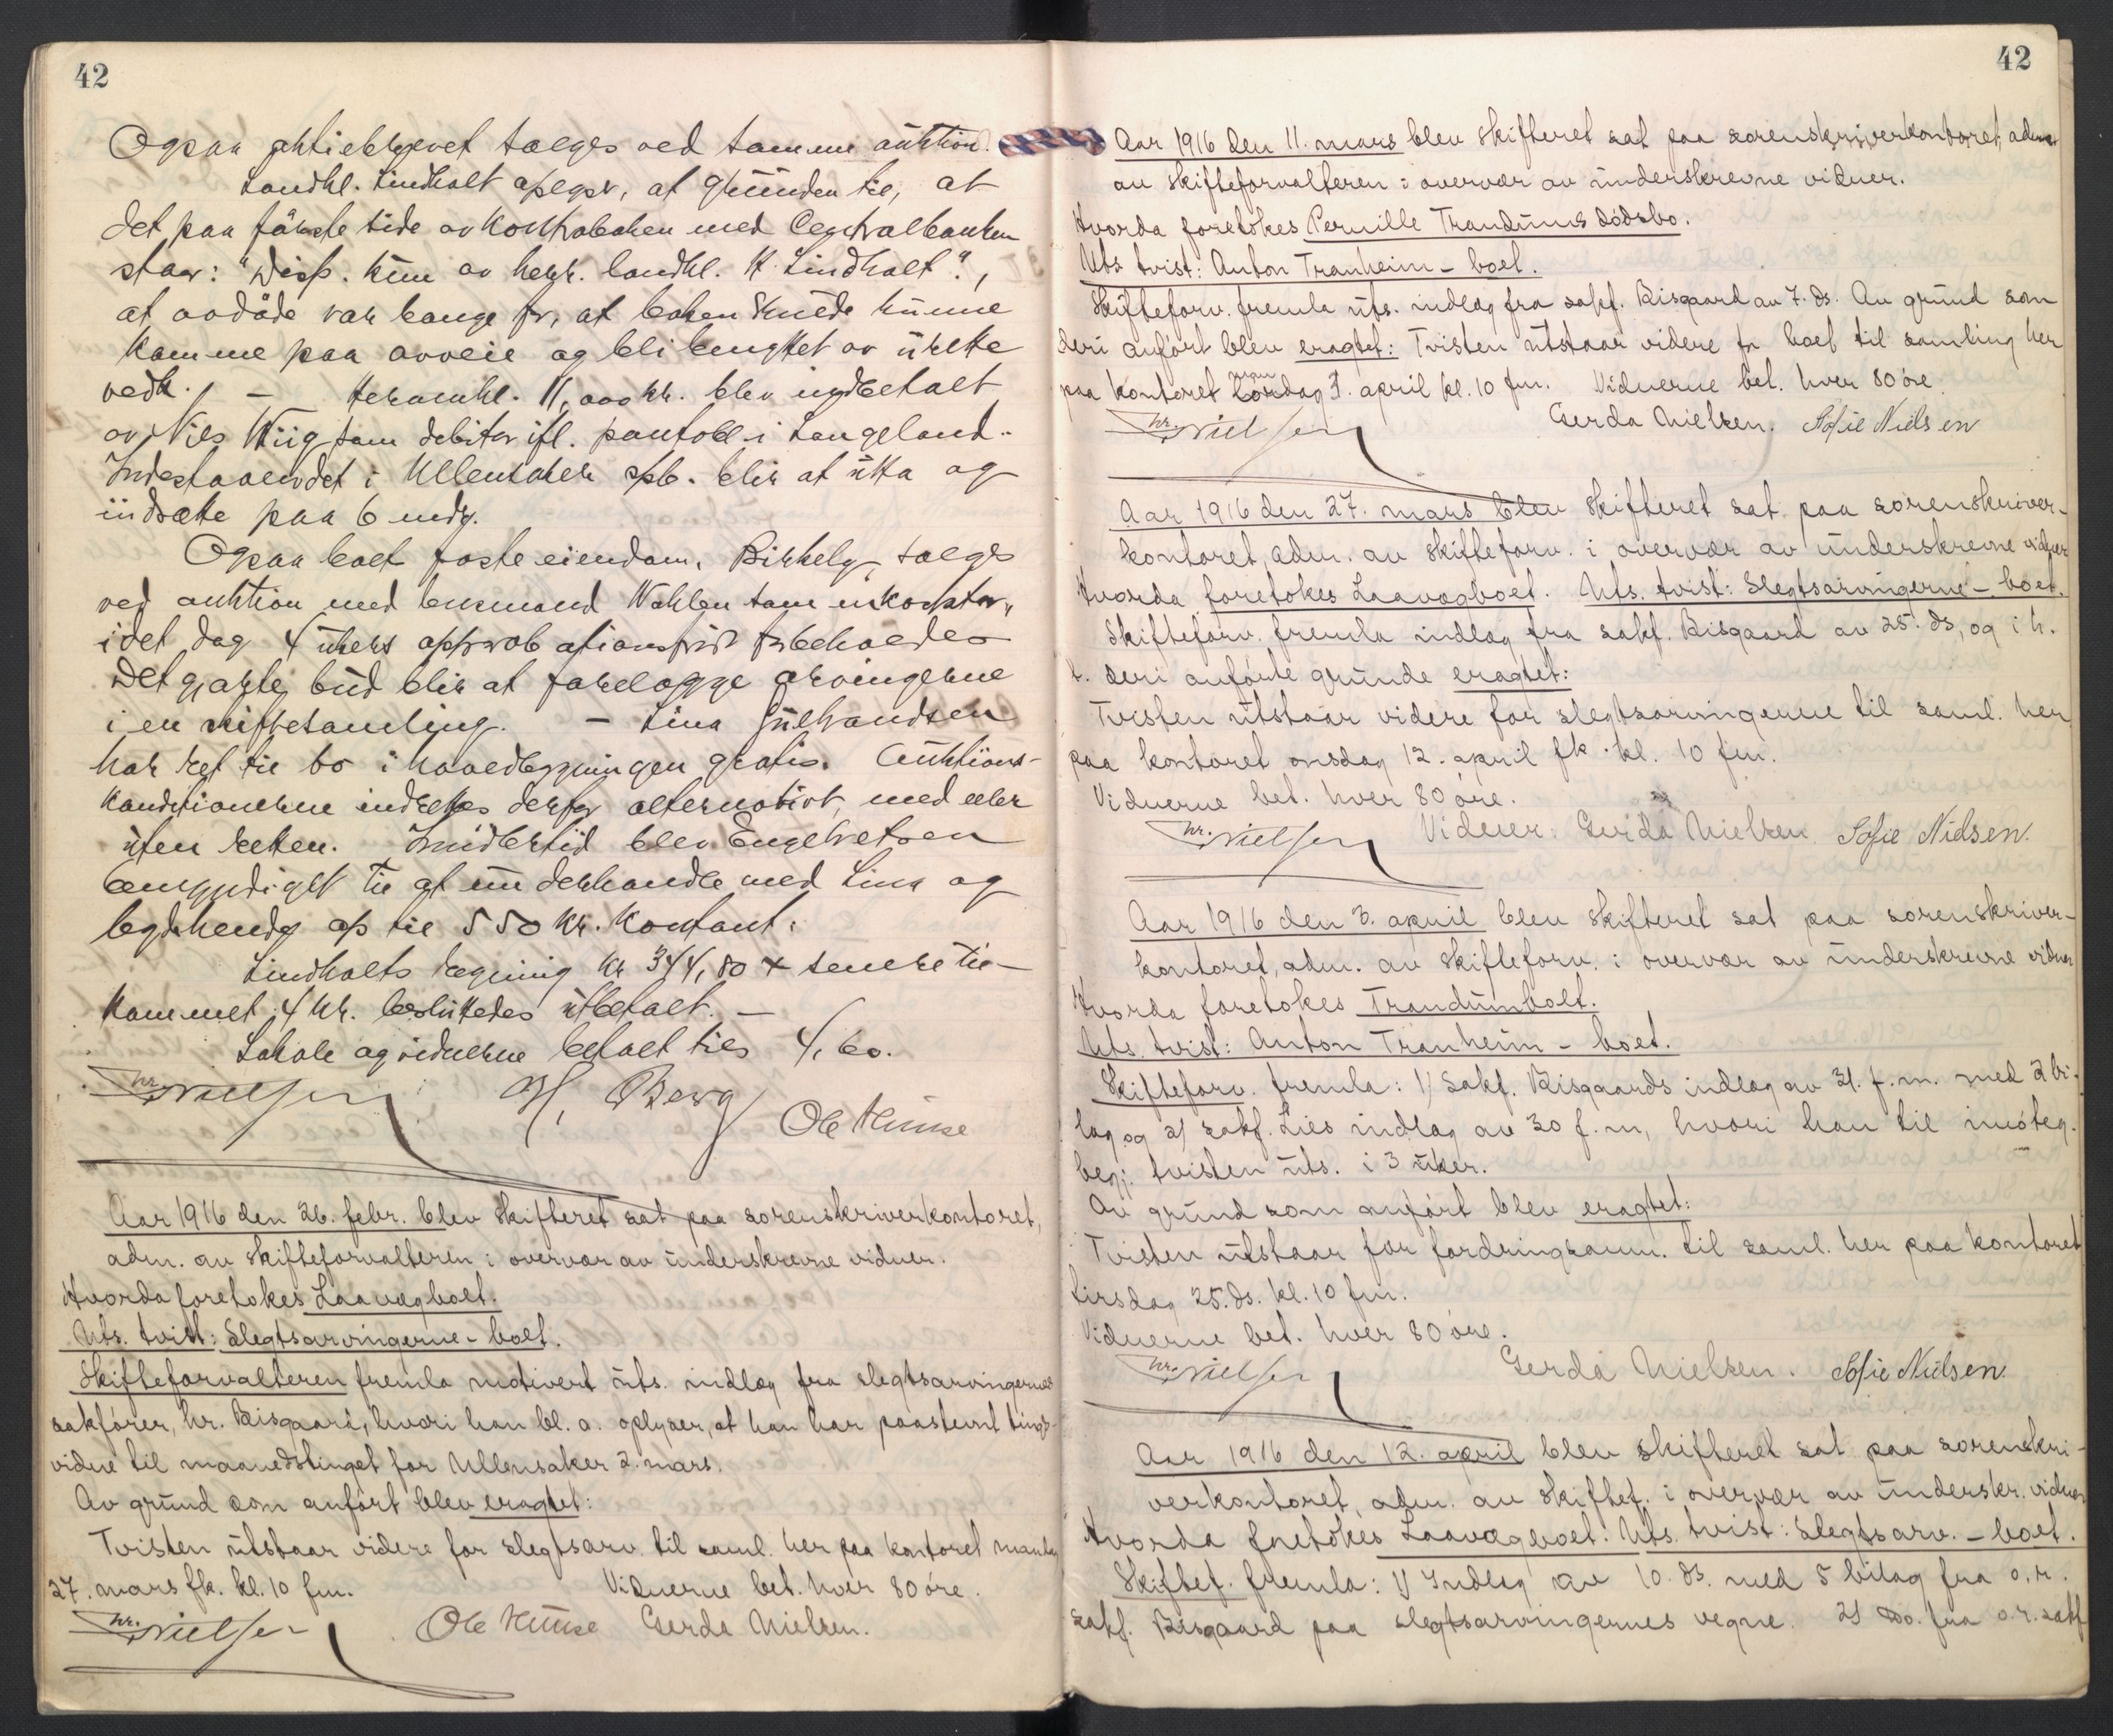 42
Ogsaa aktiebrevet sælges ved samme auktion.
Landhl. Lindholt oplyser, at grunden til, at
det paa første side av kontraboken med Centralbanken
staar: "Disp. kun av herr. landhl. H. Lindholt",
at avdøde var bange for, at boken skulde kunne
komme paa avveie og bli benyttet av urette
vedk. – Heromhl. 11,000 kr. blev indbetalt
av Nils Wiig som debitor ifl. pantobl. i Langeland.
Indestaaendet i Ullensaker spb. blir at utta og
indsætte paa 6 mdr.
Ogsaa boets faste eiendom, Birkely, sælges
ved auktion med lensmand Wohlen som inkassator,
idet dog 4 ukers approbationsfrist forbeholdes
Det gjorte bud blir at forelægge arvingerne
i en skiftesamling. – Lina Gulbrandsen
har ret til bo i hovedbygningen gratis. Auktions-
konditionerne indrettes derfor alternativt, med eller
uten retten. Imidlertid blev Engebretsen
bemyndiget til at underhandle med Lina og
by hende op til 550 kr. kontant.
Lindholts regning kr 344,80 + senere til-
kommet 4 kr. besluttedes utbetalt. –
Lokale og vidnerne betalt tils 4,60.
hr. Nielsen H. Berg Ole Huuse
Aar 1916 den 26. febr. blev skifteret sat paa sorenskriverkontoret,
adm. av skifteforvalteren i overvær av underskrevne vidner.
Hvorda foretokes Laavegboet.
Uts. tvist: Slegtsarvingerne – boet.
Skifteforvalteren fremla motivert uts. indlæg fra slegtsarvingernes
sakfører, hr. Bisgaard, hvori han bl. a. oplyser, at han har paastevnt tings-
vidne til maanedstinget for Ullensaker 2. mars.
Av grund som anført blev eragtet:
Tvisten utstaar videre for slegtsarv. til saml. her paa kontoret mandag
27. mars fk. kl. 10 fm. Vidnerne bet. hver 80 øre.
hr. Nielsen Ole Huuse Gerda Nielsen.
42
Aar 1916 den 11. mars blev skifteret sat paa sorenskriverkontoret, adm.
av skifteforvalteren i overvær av underskrevne vidner.
Hvorda foretokes Pernille Trandums dødsbo.
Uts tvist: Anton Tranheim – boet.
Skifteforv. fremla uts. indlæg fra sakf. Bisgaard av 7. ds. Av grund som
deri anført blev eragtet: Tvisten utstaar videre for boet til samling her
paa kontoret lördag 3. april kl. 10 fm. Vidnerne bet. hver 80 øre.
hr. Nielsen Gerda Nielsen. Sofie Nielsen
Aar 1916 den 27. mars blev skifteret sat paa sorenskriver-
kontoret, adm. av skifteforv. i overvær av underskrevne vidner
Hvorda foretokes Laavegboet. Uts. tvist: Slegtsarvingerne – boet.
Skifteforv. fremla indlæg fra sakf. Bisgaard av 25. ds, og i h.
t. deri anførte grunde eragtet:
Tvisten utstaar videre for slegtsarvingerne til saml. her
paa kontoret onsdag 12. april fk. kl. 10 fm.
Vidnerne bet. hver 80 øre.
hr. Nielsen Vidner: Gerda Nielsen Sofie Nielsen.
Aar 1916 den 3. april blev skifteret sat paa sorenskriver-
kontoret, adm. av skifteforv. i overvær av underskrevne vidner
Hvorda foretokes Trandumboet.
Uts. tvist: Anton Tranheim – boet.
Skifteforv. fremla: 1) Sakf. Bisgaards indlæg av 31. f. m. med 2 bi-
lag og 2) sakf. Lies indlæg av 30 f. m, hvori han til imøteg.
begj. tvisten uts. i 3 uker.
Av grund som anført blev eragtet:
Tvisten utstaar for fordringsanm. til saml. her paa kontoret
tirsdag 25. ds. kl. 10 fm.
Vidnerne bet. hver 80 øre.
hr. Nielsen Gerda Nielsen. Sofie Nielsen.
Aar 1916 den 12. april blev skifteret sat paa sorenskri-
verkontoret, adm. av skiftef. i overvær av underskr. vidner
Hvorda foretokes Laavegboet: Uts. tvist: Slegtsarv. – boet.
Skiftef. fremla: 1) Indlæg av 10. ds. med 5 bilag fra o. r.
sakf. Bisgaard paa slegtsarvingernes vegne. 2) Do. fra o. r. sakf